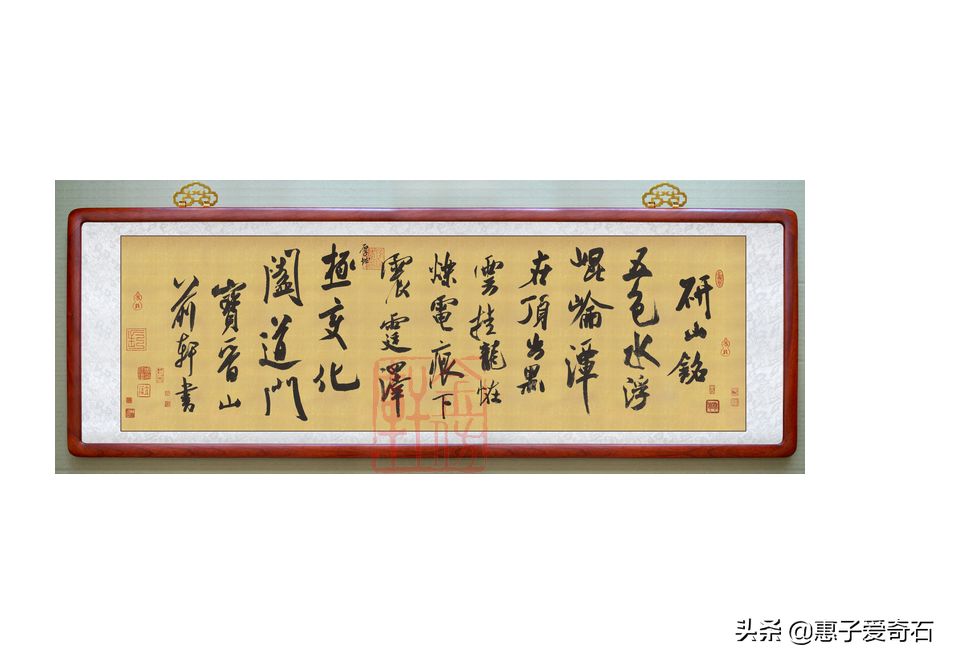 研山銘
五色水浮
崐崘潭
在頂出黑
雲挂龍恠
爍電痕下
震霆澤
極變化
闔道門
寶晉山
前軒書
头条 @惠子爱奇石